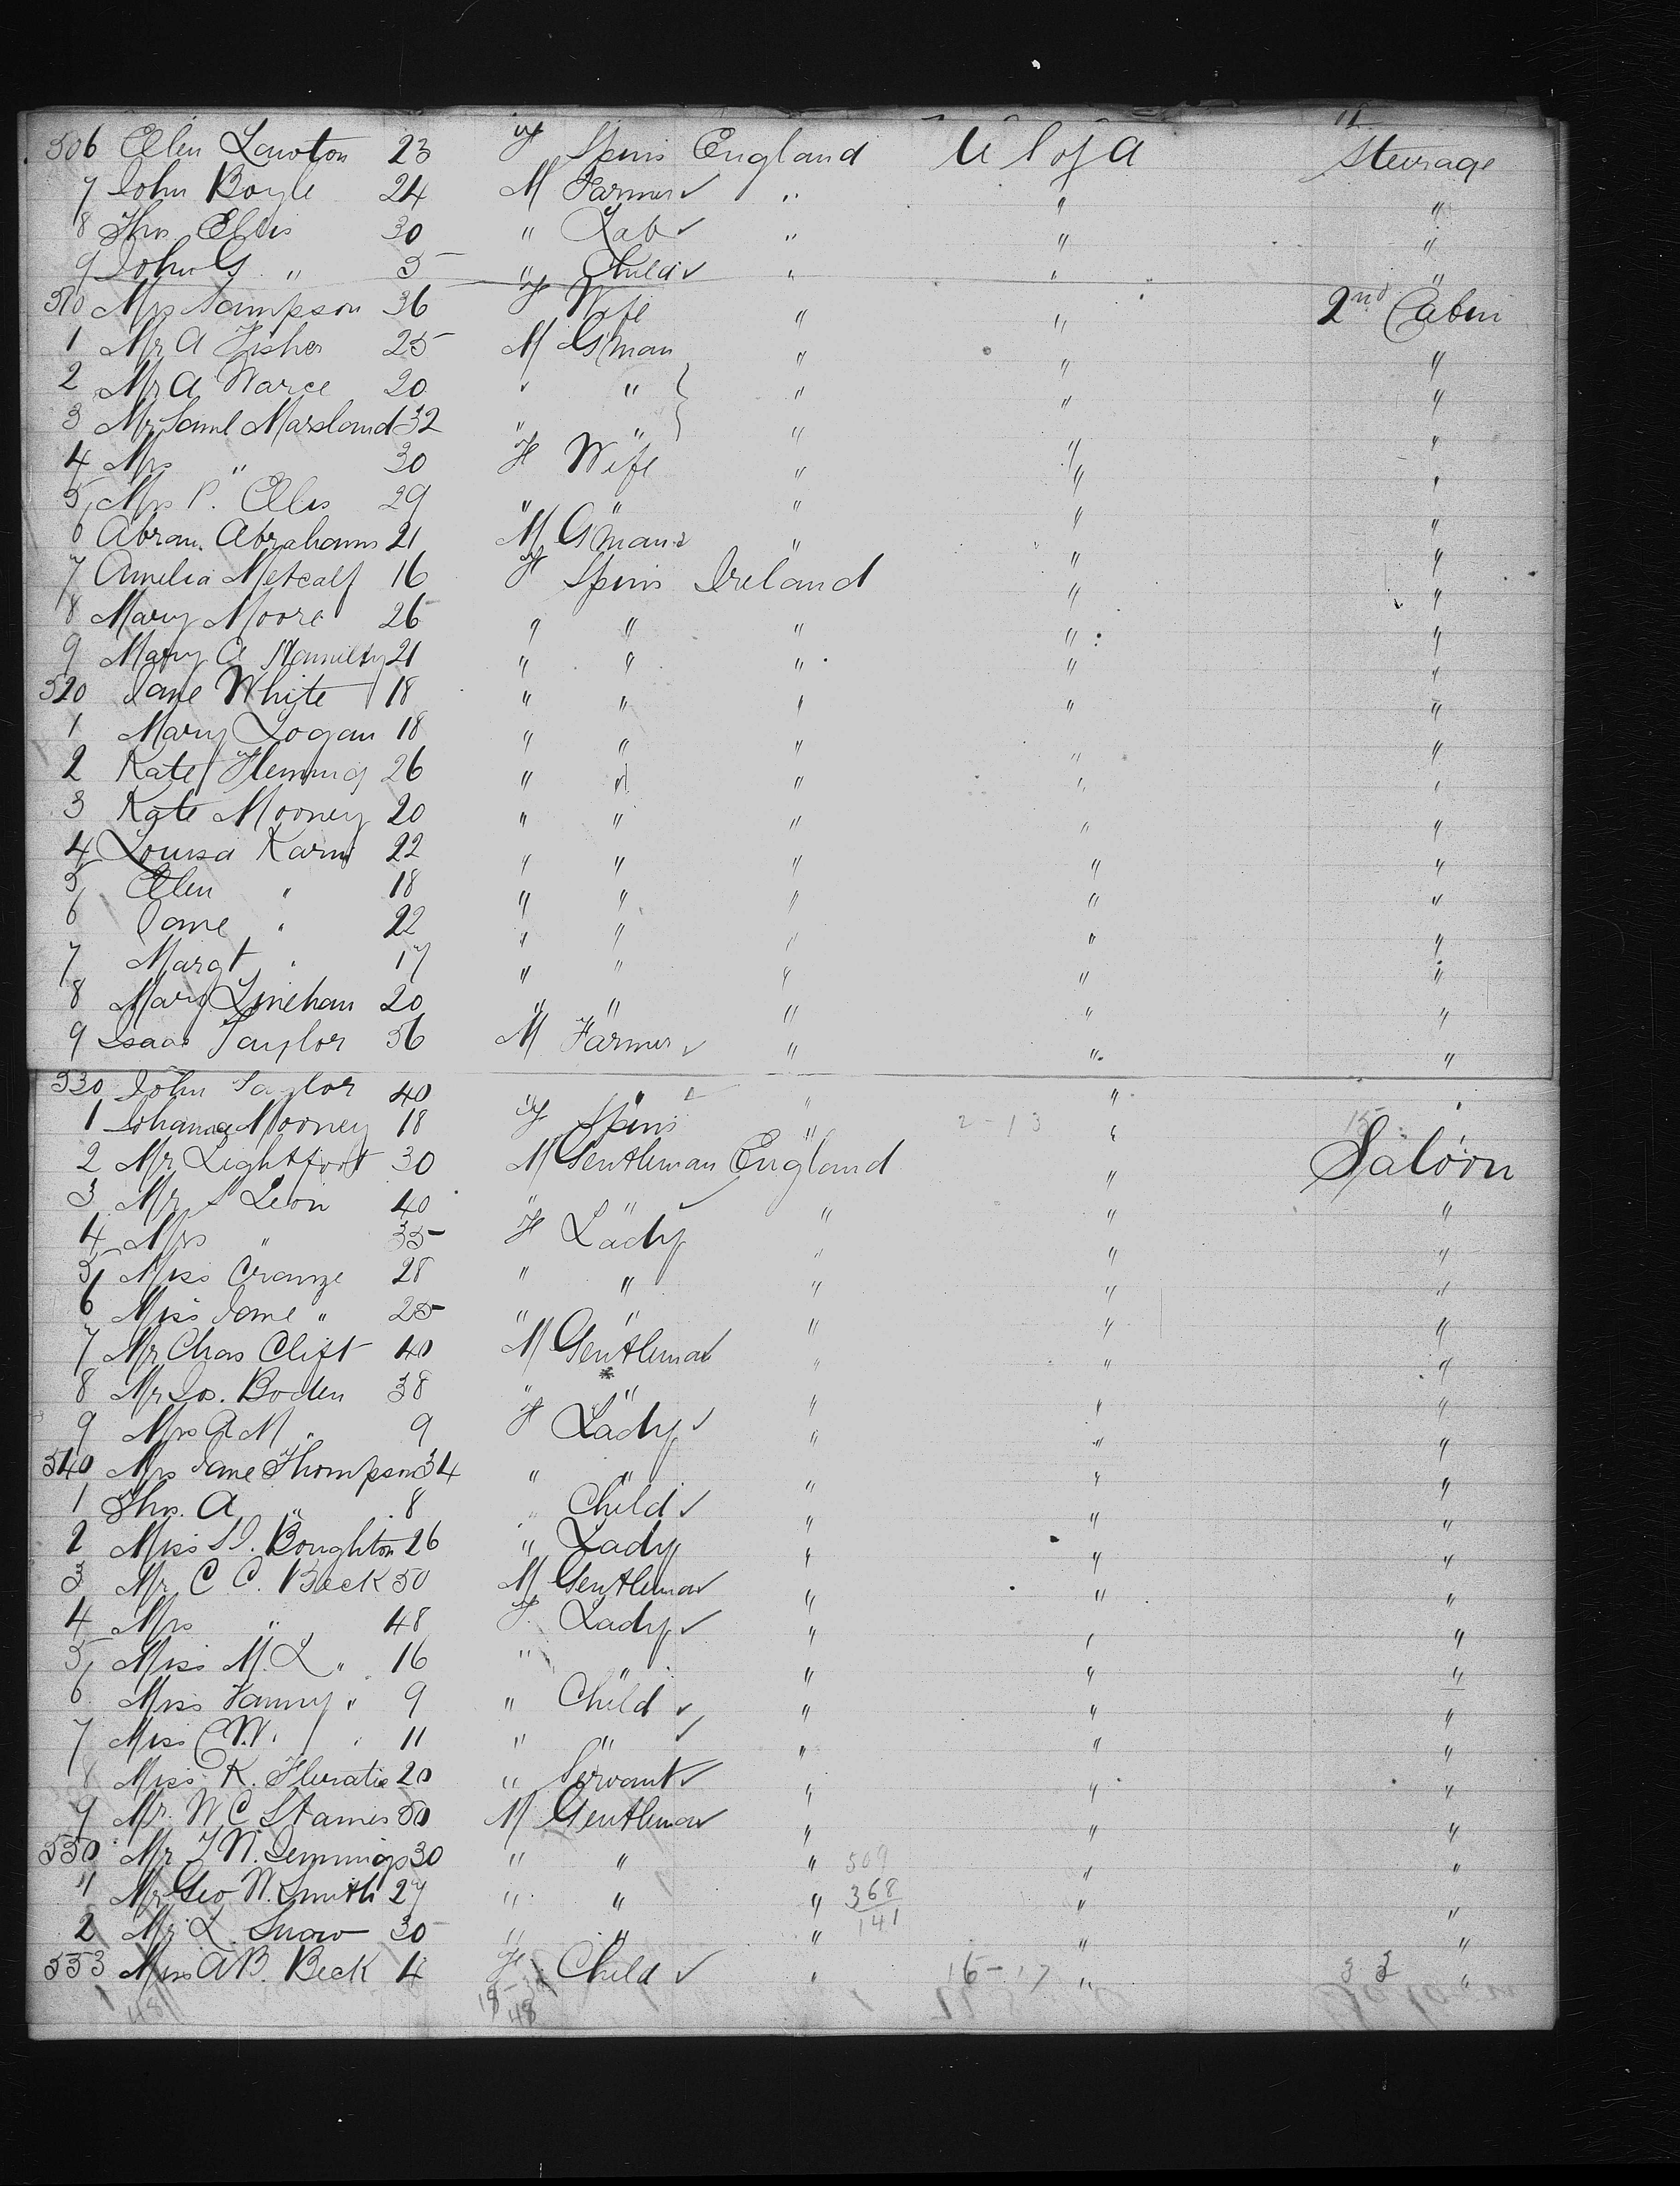 506 Ellen Lawton 23 F Spins England U S of A Steerage
7 John Boyle 24 M Farmer " " "
8 Thos Ellis 30 " Lab " " "
9 John G " 5 " Child " " "
510 Mrs Sampson 36 F Wife " " 2nd Cabin
1 Mr A Fisher 25 M G'man " " "
2 Mr A Warce 20 " " " " "
3 Mr Saml Marsland 32 " " " " "
4 Mrs " 30 F Wife " " "
5 Mrs P. Ellis 29 " " " " "
6 Abram Abrahams 21 M G'man " " "
7 Amelia Metcalf 16 F Spins Ireland " "
8 Mary Moore 26 " " " " "
9 Mary A 21 " " " " "
520 Jane White 18 " " " " "
1 Mary Logan 18 " " " "
2 Kate Fleming 26 " " " " "
3 Kate Mooney 20 " " " " "
4 Louisa 22 " " " " "
5 Ellen " 18 " " " " "
6 Jane " 22 " " " " "
7 Margt " 17 " " " " "
8 Mary Linehan 20 " " " " "
9 Isaac Taylor 56 M Farmer " " "
530 John Taylor 40 " " " " "
1 Johanna Mooney 18 F Spins " 2-13 " 15
2 Mr Lightfoot 30 M Gentleman England " Saloon
3 Mr S Leon 40 " " " " "
4 Mrs " 35 F Lady " " "
5 Miss 28 " " " " "
6 Miss Jane " 25 " " " " "
7 Mr Chas Clift 40 M Gentleman " " "
8 Mr Jos. Boden 38 " " " " "
9 Mrs A M " 9 F Lady " " "
540 Mrs Jane Thompson 34 " " " " "
1 Thos. A " 8 " Child " " "
2 Miss Boughton 26 " Lady " " "
3 Mr C C. Beck 50 M Gentleman " " "
4 Mrs " 48 F Lady " " "
5 Miss M. L " 16 " " " " "
6 Miss Fanny " 9 " Child " " "
7 Miss C W. " 11 " " " " "
8 Miss K. 20 " Servant " " "
9 Mr. W C Starnes 50 M Gentleman " " "
550 Mr J W. Jennings 30 " " " 509 " "
1 Mr Geo W. Smith 27 " " " 368 " "
2 Mr L. Snow 30 " " " 141 " "
553 Miss A B. Beck 4 F Child " 16-17 " 33 "
48